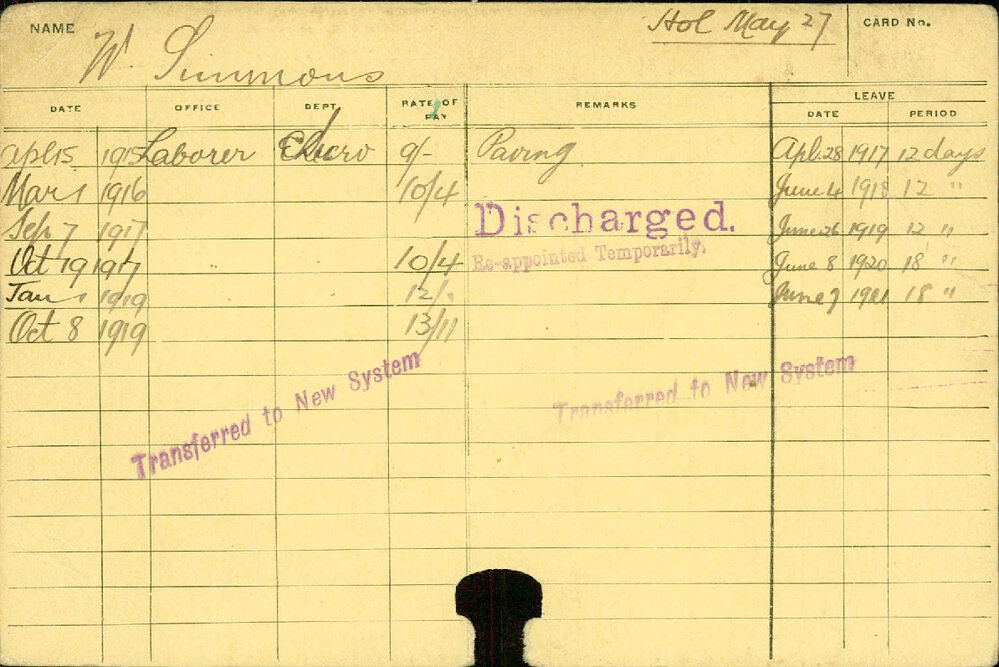 NAME W. Simmons Hol May 27 CARD No.
DATE OFFICE DEPT. RATE OF PAY REMARKS LEAVE
DATE PERIOD
Apl 15 1915 Laborer 9/- Paving Apl. 28 1917 12 days
Mar 1 1916 10/4 June 4 1918 12 "
Sep 7 1917 Discharged. June 26 1919 12 "
Oct 19 1917 10/4 Re-appointed Temporarily. June 8 1920 18 "
Jan 1 1919 12/- June 7 1921 18 "
Oct 8 1919 13/11
Transferred to New System
Transferred to New System